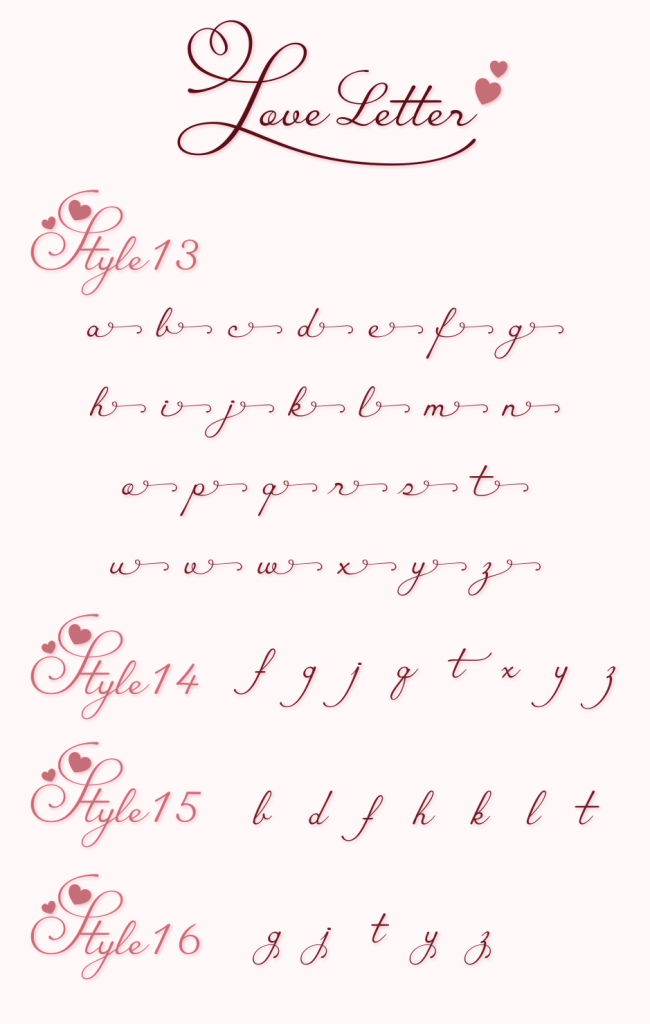 Love Letter
Style 13
a b c d e f g
h i j k l m n
o p q r s t
u v w x y z
Style 14 f g j q t x y z
Style 15 b d f h k l t
Style 16 g j t y z